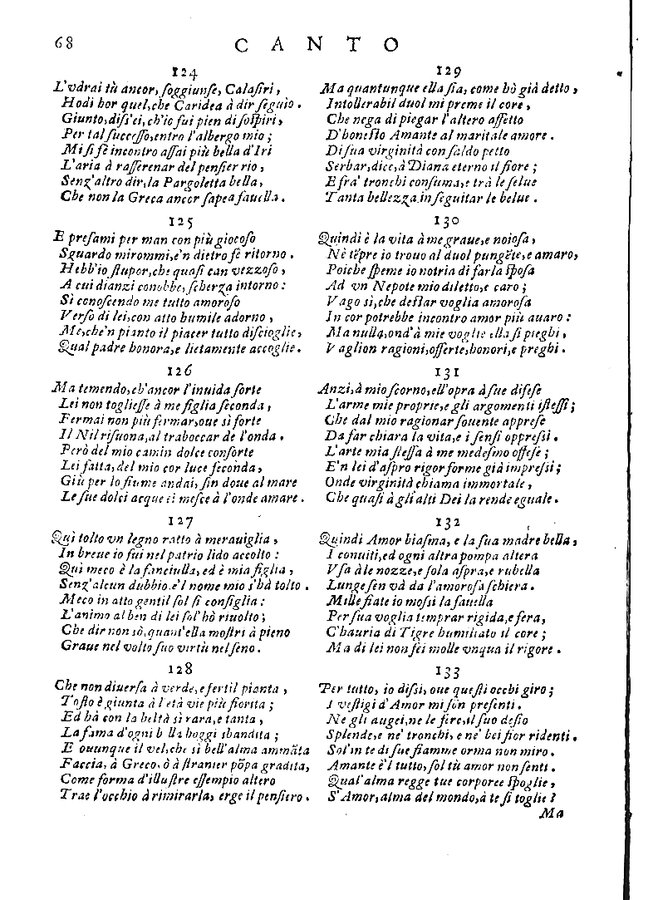 68
CANTO
124
L'vdrai tù ancor, soggiunse, Calasiri,
Hodi hor quel, che Caridea à dir seguio.
Giunto, dissi ei, ch'io fui pien di sospiri,
Per tal successo, entro l'albergo mio;
Mi si fè incontro assai più bella d'Iri
L'aria à rasserenar del pensier rio,
Senz'altro dir, la Pargoletta bella,
Che non la Greca ancor sapea fauella.
125
E presami per man con più giocoso
Sguardo mirommi, e'n dietro fè ritorno.
Hebb'io stupor, che quasi can vezzoso,
A cui dianzi conobbe, scherza intorno:
Sì conoscendo me tutto amoroso
Verso di lei, con atto humile adorno,
Me, che'n pianto il piacer tutto discioglie,
Qual padre honora, e lietamente accoglie.
126
Ma temendo, ch'ancor l'inuida sorte
Lei non togliesse à me figlia seconda,
Fermai non più fermar, oue sì forte
Il Nil risuona, al traboccar de l'onda.
Però del mio camin dolce consorte
Lei fatta, del mio cor luce seconda,
Giù per lo fiume andai, sin doue al mare
Le sue dolci acque ei mesce à l'onde amare.
127
Quì tolto vn legno ratto à merauiglia,
In breue io fui nel patrio lido accolto:
Qui meco è la fanciulla, ed è mia figlia,
Senz'alcun dubbio, e'l nome mio s'hà tolto.
Meco in atto gentil sol si consiglia:
L'animo al ben di lei sol'hò riuolto;
Che dir non sò, quant'ella mostri à pieno
Graue nel volto suo virtù nel seno.
128
Che non diuersa à verde, e fertil pianta,
Tosto è giunta à l'età vie più fiorita;
Ed hà con la beltà sì rara, e tanta,
La fama d'ogni b lla hoggi sbandita;
E ouunque il vel, che sì bell'alma ammãta
Faccia, ò Greco, ò à stranier põpa gradita,
Come forma d'illustre essempio altero
Trae l'occhio à rimirarla, erge il pensiero.
129
Ma quantunque ella sia, come hò già detto,
Intollerabil duol mi preme il core,
Che nega di piegar l'altero affetto
D'honesto Amante al maritale amore.
Di sua virginità con saldo petto
Serbar, dice, à Diana eterno il fiore;
E frà tronchi consuma, e trà le selue
Tanta bellezza in seguitar le belue.
130
Quindi è la vita à me graue, e noiosa,
Nè tẽpre io trouo al duol pungẽte, e amaro,
Poiche speme io notria di farla sposa
Ad vn Nepote mio diletto, e caro;
Vago sì, che destar voglia amorosa
In cor potrebbe incontro amor più auaro:
Ma nulla, ond'à mie voglie ella si pieghi,
Vaglion ragioni, offerte, honori, e preghi.
131
Anzi, à mio scorno, ell'opra à sue difese
L'arme mie proprie, e gli argomenti istessi;
Che dal mio ragionar souente apprese
Da far chiara la vita, e i sensi oppressi.
L'arte mia stessa à me medesmo offese;
E'n lei d'aspro rigor forme già impressi;
Onde virginità chiama immortale,
Che quasi à gli alti Dei la rende eguale.
132
Quindi Amor biasma, e la sua madre bella,
I conuiti, ed ogni altra pompa altera
Vsa à le nozze, e sola aspra, e rubella
Lunge sen và da l'amorosa schiera.
Mille fiate io mossi la fauella
Per sua voglia temprar rigida, e fera,
C'hauria di Tigre humiliato il core;
Ma di lei non fei molle vnqua il rigore.
133
Per tutto, io dissi, oue questi occhi giro;
I vestigi d'Amor mi son presenti.
Ne gli augei, ne le fire, il suo desio
Splende, e ne' tronchi, e ne' bei fior ridenti.
Sol'in te di sue fiamme orma non miro.
Amante è'l tutto, sol tù amor non senti.
Qual'alma regge tue corporee spoglie,
S'Amor, alma del mondo, à te si toglie?
Ma